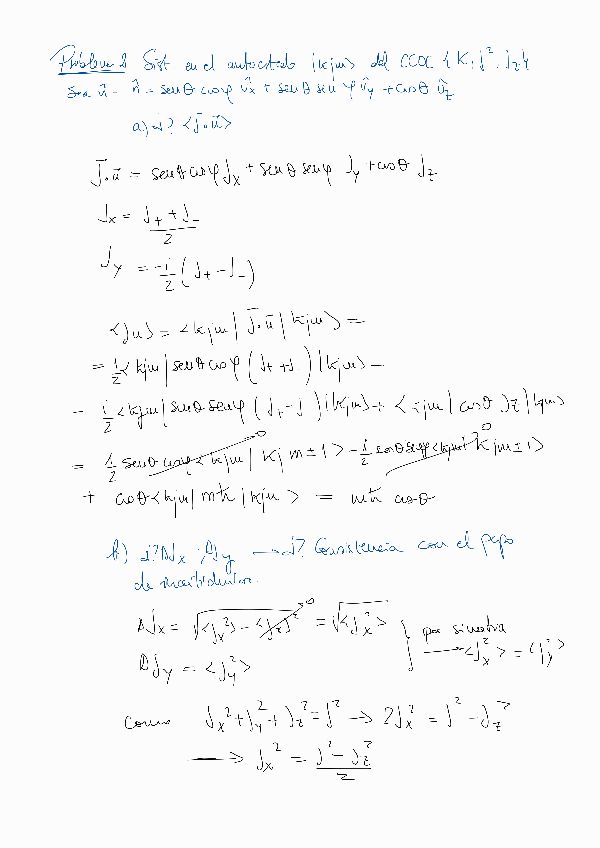 Problema 2 Sist en el autoestado |kjm> del CCOC {K, J², Jz}
Sea û = n̂ = senθ cosφ v̂x + senθ sin φ v̂y + cosθ v̂z
a) ¿? <J⃗·u⃗>
J⃗·u⃗ = senθ cosφ Jx + senθ senφ Jy + cosθ Jz
Jx = (J+ + J-)/2
Jy = -i/2 (J+ - J-)
<Ju> = <kjm| J⃗·u⃗ |kjm> =
= 1/2 <kjm| senθ cosφ (J+ + J-) |kjm> -
- i/2 <kjm| senθ senφ (J+ - J-) |kjm> + <kjm| cosθ Jz |kjm>
= 1/2 senθ cosφ <kjm| kj m±1> - i/2 senθ senφ <kjm| kjm±1>
0 0
+ cosθ <kjm| mħ |kjm> = mħ cosθ
b) ¿? ΔJx, ΔJy → ¿? Consistencia con el ppo
de incertidumbre.
ΔJx = √(<Jx²> - <Jx>²) = √<Jx²>
0
ΔJy = <Jy²>
por simetría
→ <Jx²> = <Jy²>
Como Jx² + Jy² + Jz² = J² → 2Jx² = J² - Jz²
→ Jx² = (J² - Jz²)/2